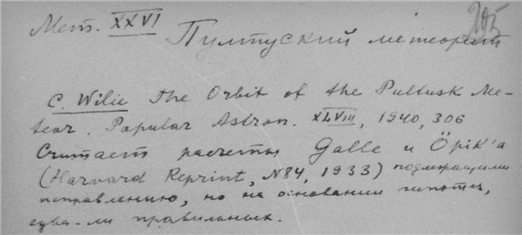 Мет. XXVI
195
Пултуский метеорит
C. Wilie The Orbit of the Pultusk Me-
teor. Popular Astron. XLVIII, 1940, 306
Считает расчеты Galle и Öpik'a
(Harvard Reprint, N84, 1933) подлежащими
исправлению, но на основании гипотез,
едва-ли правильных.